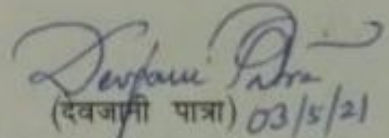 Devjani Patra
(देवजानी पात्रा) 03/5/21